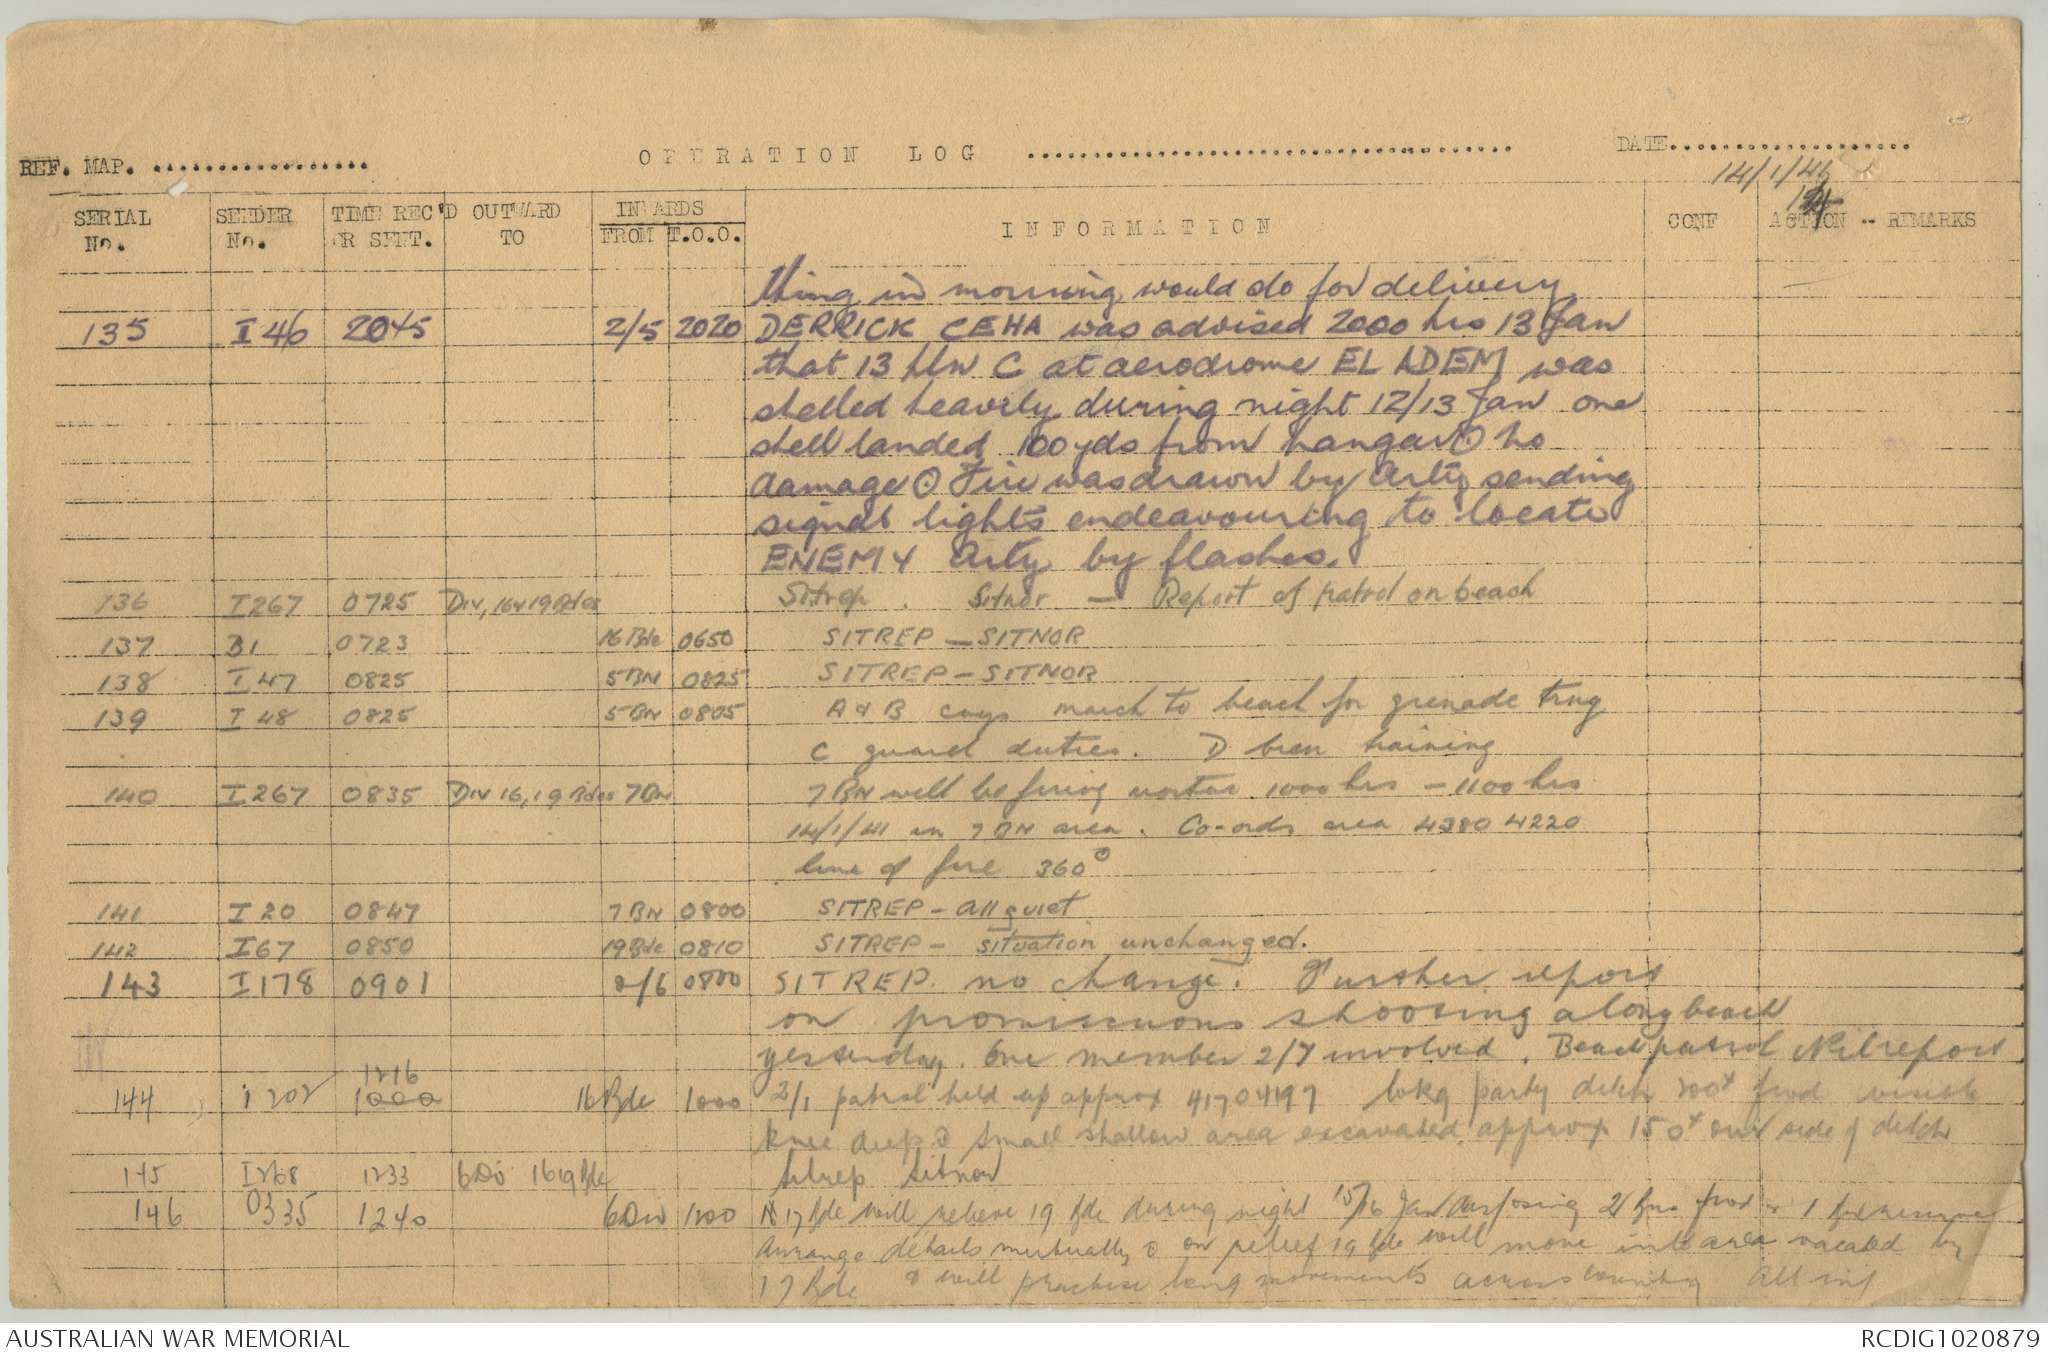 REF. MAP. ..................
OPERATION LOG ......................................
DATE...................
14/1/41
SERIAL No.
SENDER No.
TIME REC'D OR SENT.
OUTWARD TO
INWARDS
FROM T.O.O.
INFORMATION
CONF
ACTION -- REMARKS
thing in morning would do for delivery
135 I 46 2045 2/5 2020 DERRICK CEHA was advised 2000 hrs 13 Jan
that 13 C at aerodrome EL ADEM was
shelled heavily during night 12/13 Jan one
shell landed 100 yds from hangar ⊙ no
damage ⊙ Fire was drawn by Arty sending
signal lights endeavouring to locate
ENEMY Arty by flashes.
136 I 267 0725 Div, 16 & 19 Bdes Sitrep. Sitnor — Report of patrol on beach
137 B1 0723 16 Bde 0650 SITREP — SITNOR
138 I 47 0825 5 BN 0825 SITREP — SITNOR
139 I 48 0825 5 BN 0805 A & B coys march to beach for grenade trng
C guard duties. D bren training
140 I 267 0835 Div 16, 19 Bdes 7 Bn 7 BN will be firing mortar 1000 hrs — 1100 hrs
14/1/41 in 7 BN area. Co-ords area 4380 4220
line of fire 360°
141 I 20 0847 7 BN 0800 SITREP — All quiet
142 I 67 0850 19 Bde 0810 SITREP — situation unchanged.
143 I 178 0901 2/6 0800 SITREP. no change. Further report
on promiscuous shooting along beach
yesterday. One member 2/7 involved. Beach patrol Nil report
144 I 202 1216 1000 16 Bde 1000 2/1 patrol held up approx 41704197 wkg party ditch 200ˣ visible
knee deep & small shallow area excavated approx 150ˣ our side of ditch
145 I 268 1233 6 Div 16 19 Bde Sitrep Sitnor
146 0335 1240 6 Div 1200 17 Bde will relieve 19 Bde during night 15/16 Jan disposing 2 Bns fwd & 1 Bn reserve
Arrange details mutually & on relief 19 Bde will move into area vacated by
17 Bde & will practise long movements across country All inf
AUSTRALIAN WAR MEMORIAL
RCDIG1020879